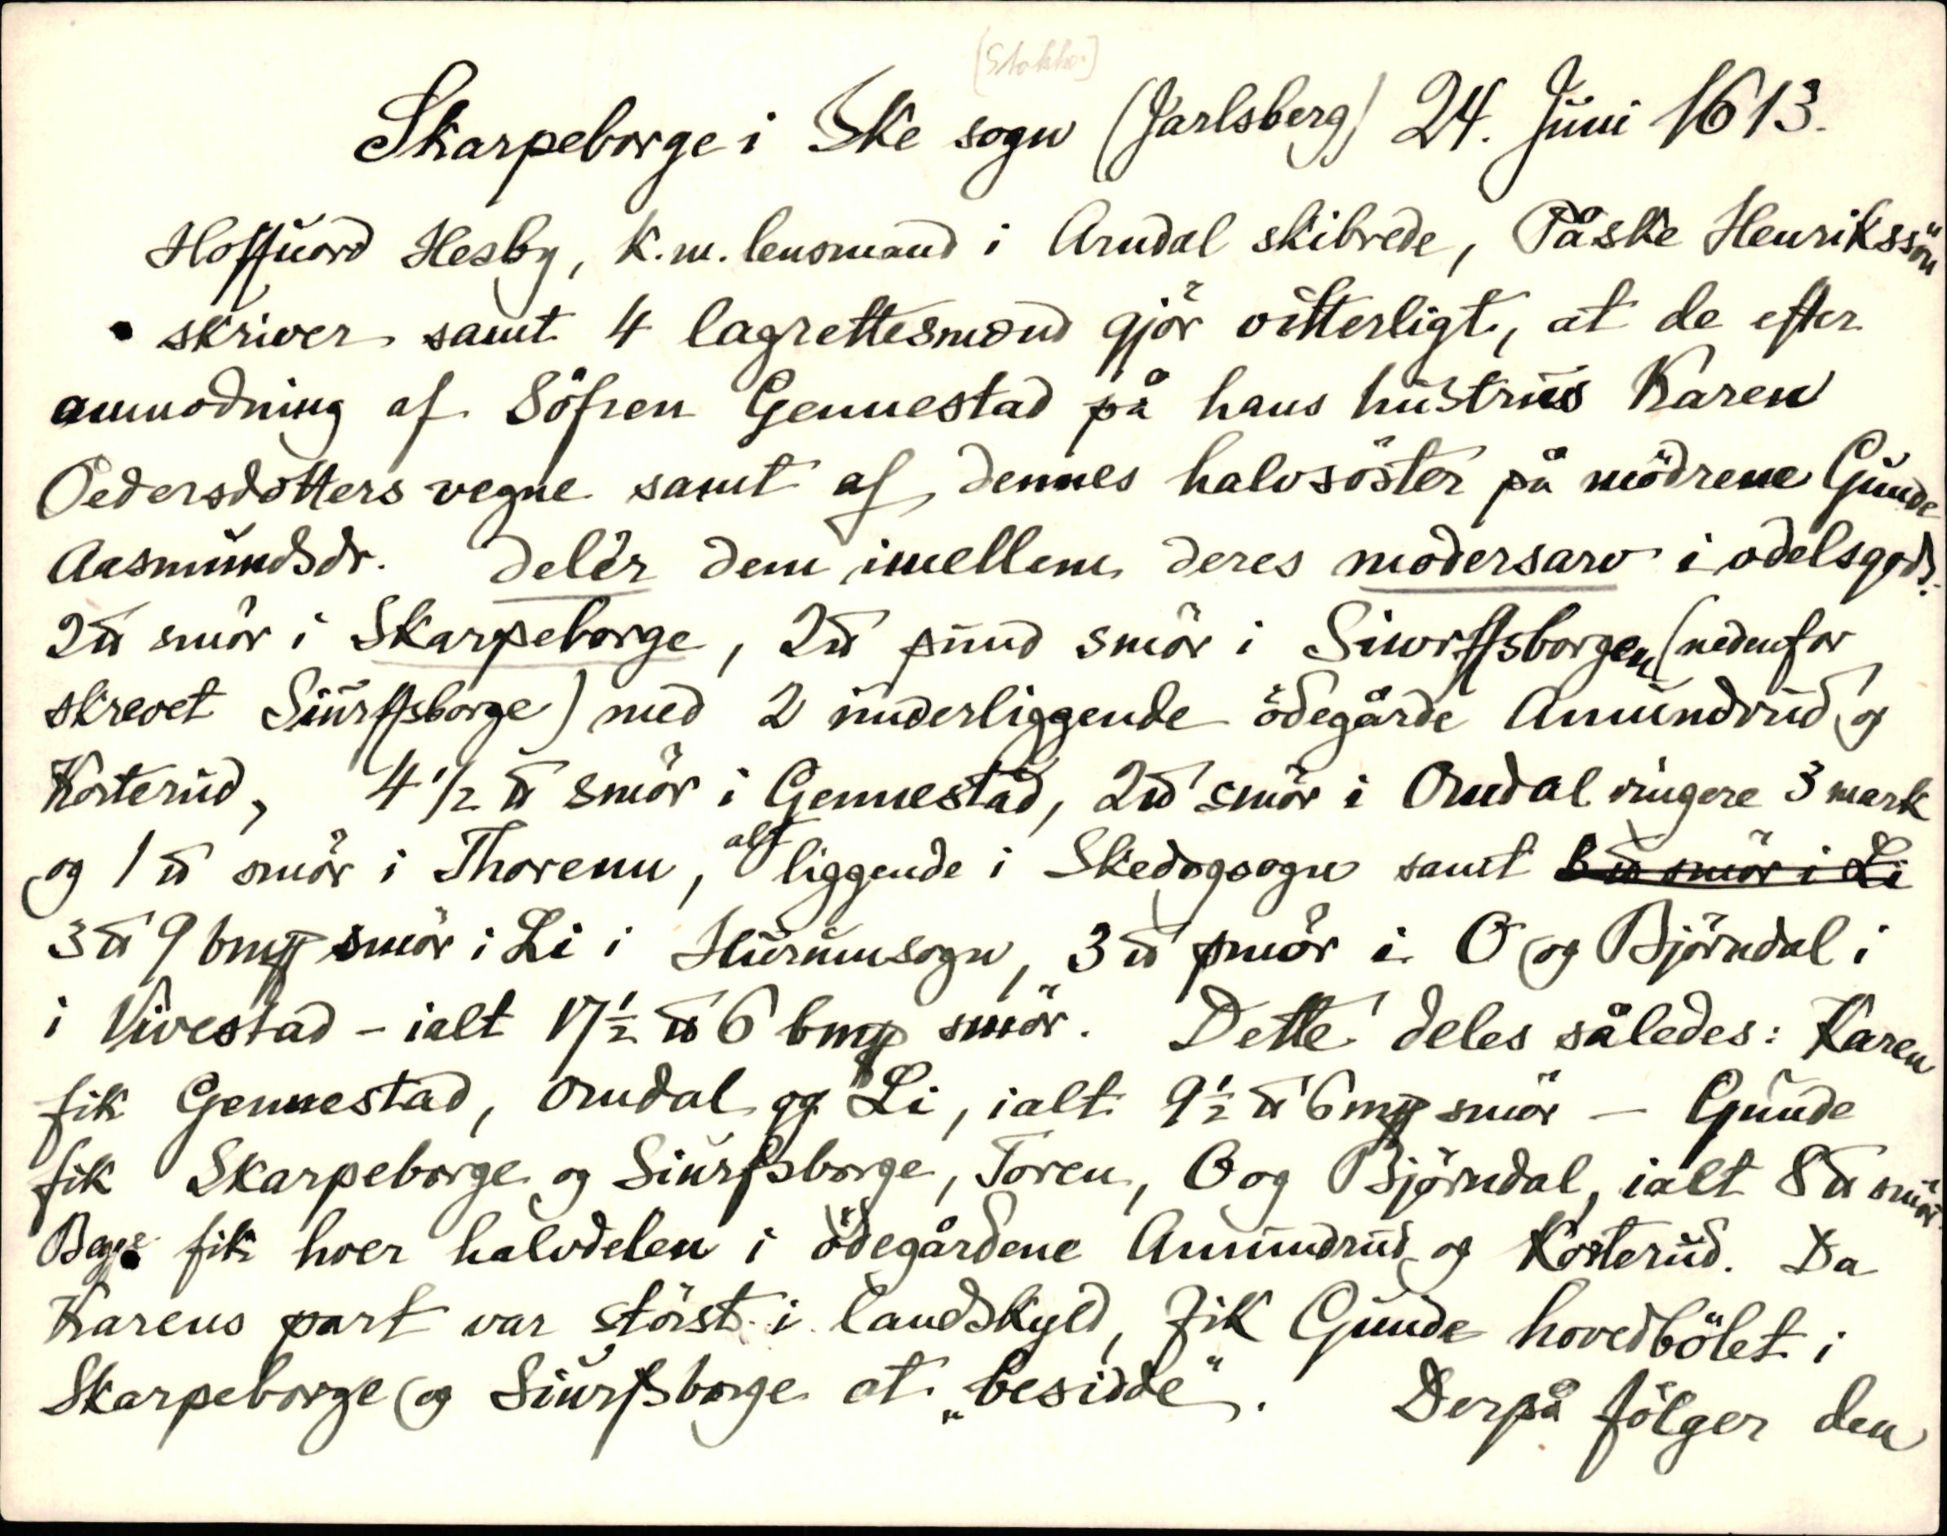 [Stokke]
Skarpeborge i Ske sogn (Jarlsberg) 24. Juni 1613.
Hoffuord Hesby, k. m. lensmand i Arndal skibrede, Påske Henrikssön
skriver samt 4 lagrettesmænd gjör vitterligt, at de efter
anmodning af Söfren Gennestad på hans hustrus Karen
Pedersdotters vegne samt af dennes halvsöster på mödrene Gunde
Aasmundsdr. delér dem imellem deres modersarv i odelsgods.
2 ℔ smör i Skarpeborge, 2 ℔ pund smör i Siworffsborgen (nedenfor
skrevet Siurffsborge) med 2 underliggende ödegårde Amundrud og
Kosterud, 4 1/2 ℔ smör i Gennestad, 2 ℔ smör i Omdal ringere 3 mark
og 1 ℔ smör i Thorenn, alt liggende i Skedogsogn samt 6 ℔ smör i Li
3 ℔ 9 bmp smör i Li i Hurumsogn, 3 ℔ smör i O og Björndal i
i Vivestad - ialt 17 1/2 ℔ 6 bmp smör. Dette deles således: Karen
fik Gennestad, Omdal og Li, ialt 9 1/2 ℔ 6 mp smör - Gunde
fik Skarpeborge og Siurfsborge, Toren, O og Björndal, ialt 8 ℔ smör.
Begge fik hver halvdelen i ödegårdene Amundrud og Kosterud. Da
Karens part var störst i landskyld, fik Gunde hovedbölet i
Skarpeborge og Siurfsborge at "besidde". Derpå fölger den